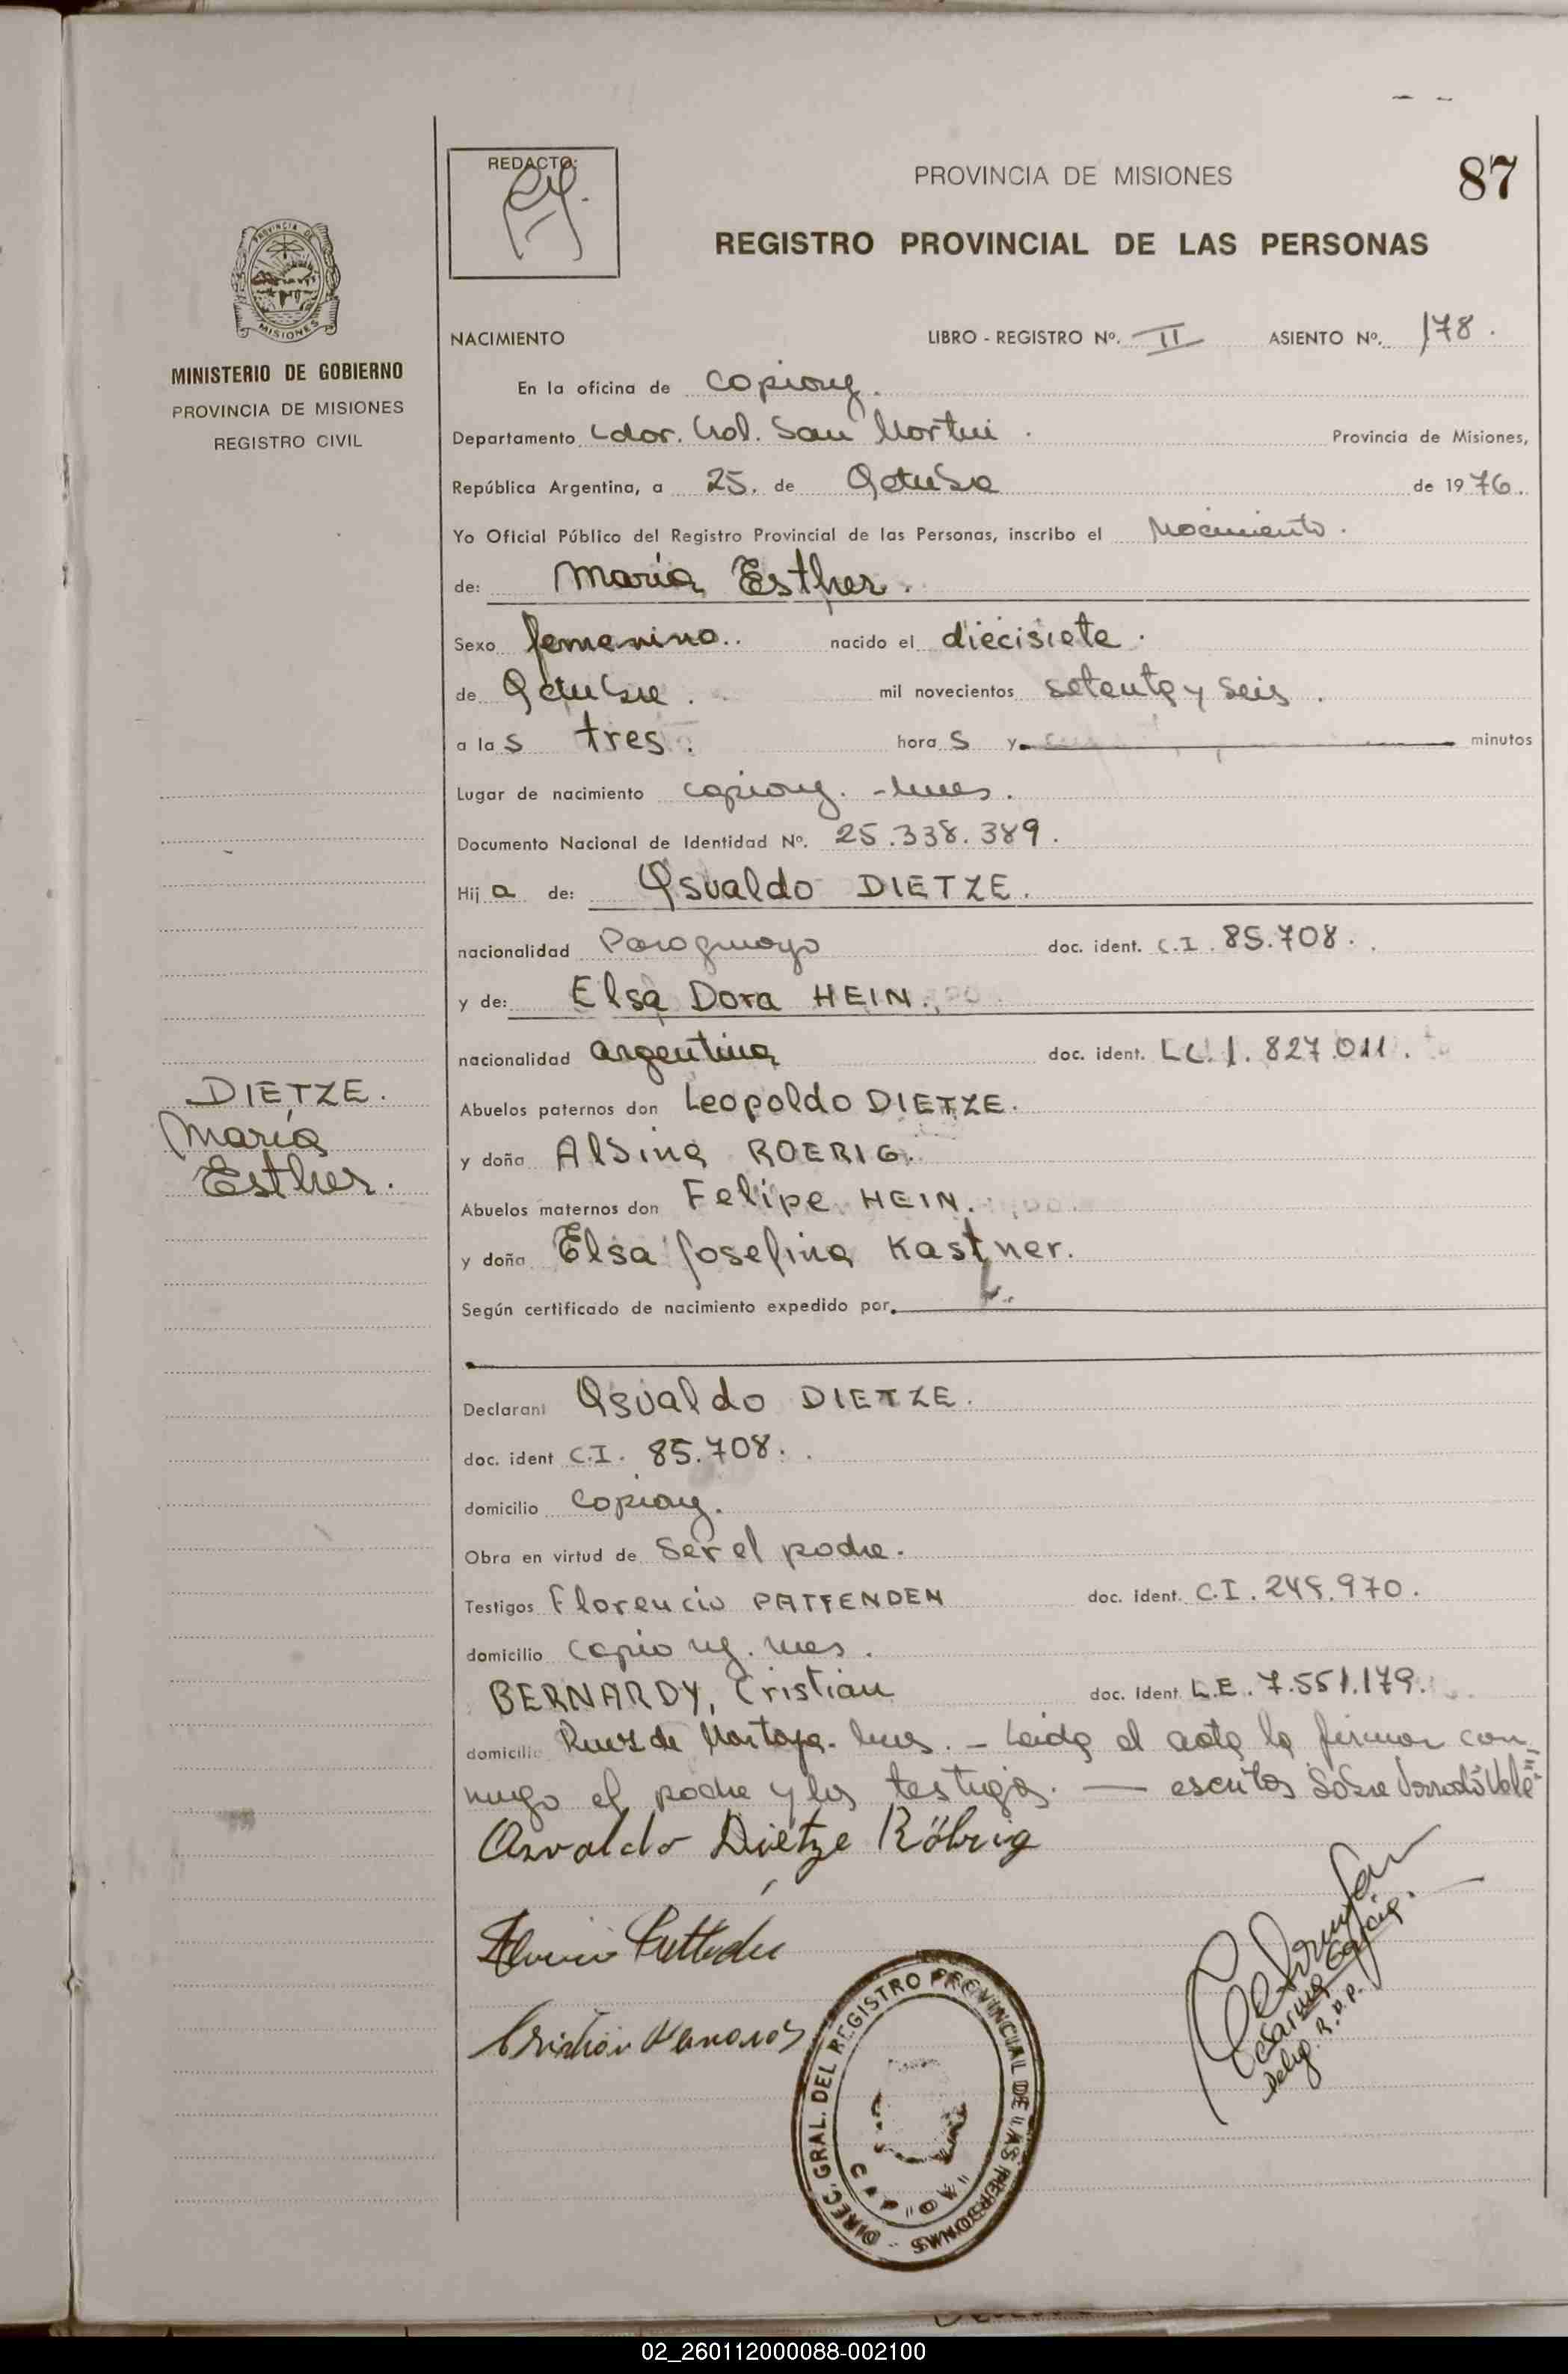 REDACTO:
PROVINCIA DE MISIONES
87
REGISTRO PROVINCIAL DE LAS PERSONAS
PROVINCIA DE MISIONES
MINISTERIO DE GOBIERNO
PROVINCIA DE MISIONES
REGISTRO CIVIL
NACIMIENTO LIBRO - REGISTRO Nº. II ASIENTO Nº. 178.
En la oficina de Capiovy.
Departamento Ldor. Gral. San Martin. Provincia de Misiones,
República Argentina, a 25. de Octubre de 1976.
Yo Oficial Público del Registro Provincial de las Personas, inscribo el Nacimiento.
de: María Esther.
Sexo femenino.. nacido el diecisiete.
de Octubre. mil novecientos setenta y seis.
a las tres. horas y minutos
Lugar de nacimiento Capiovy. - Mnes.
Documento Nacional de Identidad Nº. 25.338.389.
Hija de: Osvaldo DIETZE.
nacionalidad Paraguayo doc. ident. C.I. 85.708.
y de: Elsa Dora HEIN.
nacionalidad argentina doc. ident. L.C. 1.827.011.
DIETZE.
María
Esther.
Abuelos paternos don Leopoldo DIETZE.
y doña Albina ROERIG.
Abuelos maternos don Felipe HEIN.
y doña Elsa Josefina Kastner.
Según certificado de nacimiento expedido por
Declarant Osvaldo DIETZE.
doc. ident C.I. 85.708.
domicilio Capiovy.
Obra en virtud de ser el padre.
Testigos Florencio PATTENDEN doc. ident. C.I. 245.970.
domicilio Capiovy. Mnes.
BERNARDY, Cristian doc. Ident. L.E. 7.551.179.
domicilio Ruiz de Montoya. Mnes. - Leida el acta la firman con-
migo el padre y los testigos. — escritos sobre borrado Vale
Osvaldo Dietze Röhrig
DIREC. GRAL. DEL REGISTRO PROVINCIAL DE LAS PERSONAS
Delg. R.P.P.
02_260112000088-002100